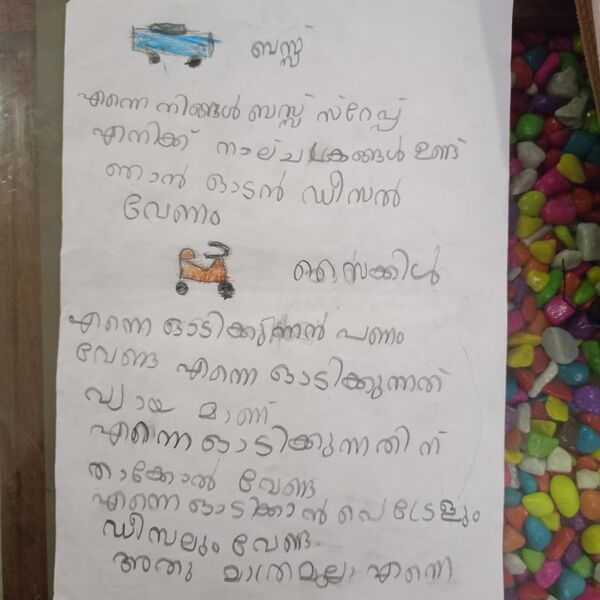 ബസ്സ്
എന്നെ നിങ്ങൾ ബസ്സ് സ്റേപ്പ്
എനിക്ക് നാല് ചക്രങ്ങൾ ഉണ്ട്
ഞാൻ ഓടൻ ഡീസൽ
വേണം
സൈക്കിൾ
എന്നെ ഓടിക്കുന്നൻ പണം
വേണ്ട എന്നെ ഓടിക്കുന്നത്
വ്യായ മാണ്
എന്നെ ഓടിക്കുന്നതിന്
താക്കോൽ വേണ്ട
എന്നെ ഓടിക്കാൻ പെട്രേളും
ഡീസലും വേണ്ട
അതു മാത്രമുല്ലാ എന്നെ